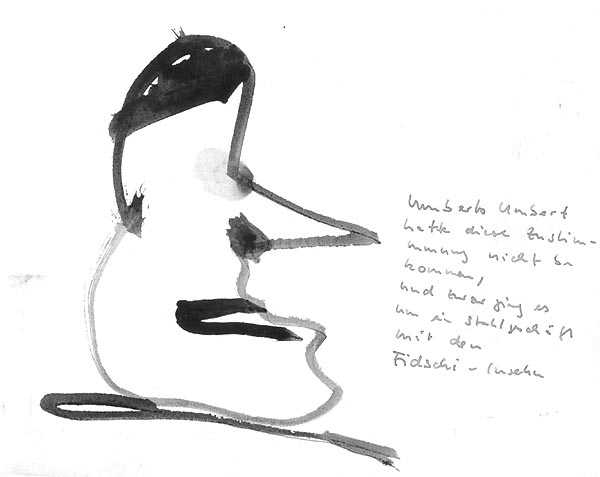 Umberto Umbert
hatte diese Zustim-
mmung nicht be
kommen,
und zwar ging es
um ein Stahlgeschäft
mit den
Fidschi-Inseln